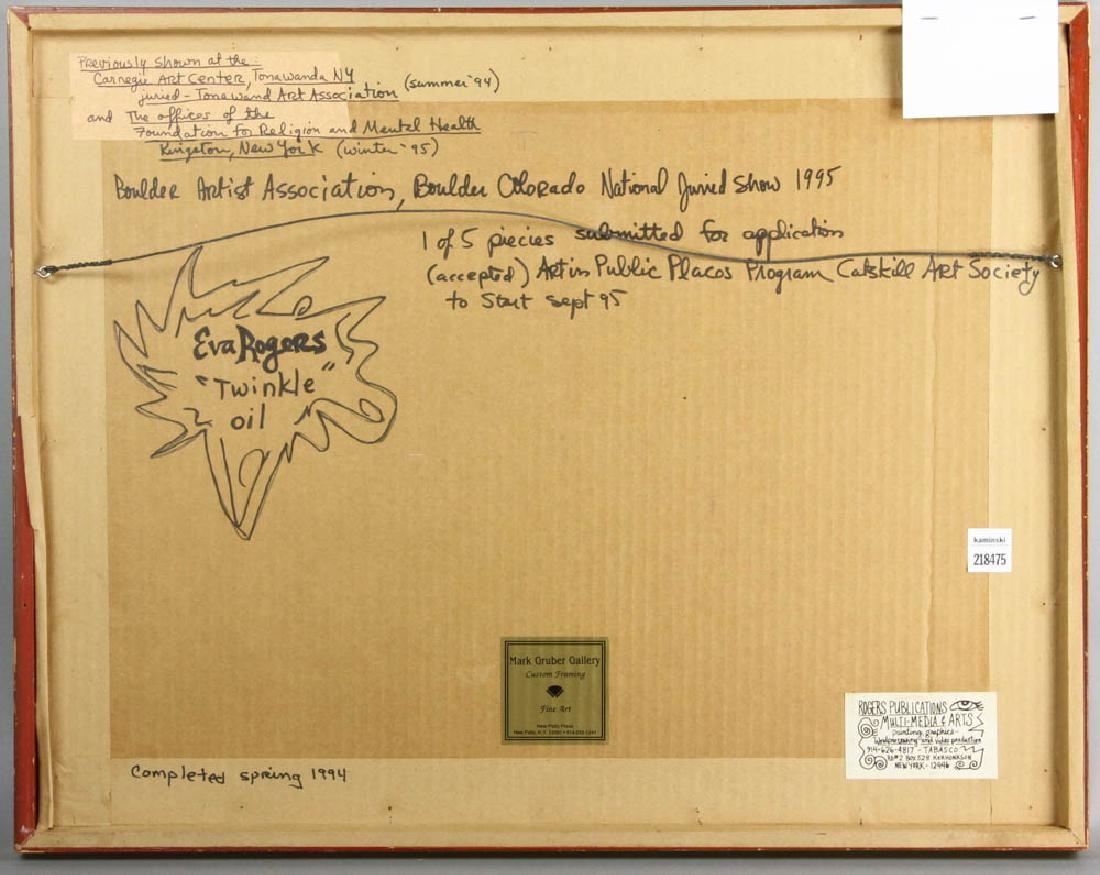 Previously shown at the:
Carnegie Art Center, Tonawanda NY
juried - Tonawand Art Association (summer '94)
and The offices of the
Foundation for Religion and Mental Health
Kingston, New York (winter '95)
Boulder Artist Association, Boulder Colorado National Juried Show 1995
1 of 5 piecies submitted for application
(accepted) Art in Public Places Program Catskill Art Society
to Start sept 95
Eva Rogers
"Twinkle"
oil
kaminski
218475
Mark Gruber Gallery
Custom Framing
Fine Art
New Paltz Plaza
New Paltz, N.Y. 12561 • 914-255-1241
ROGERS PUBLICATIONS
MULTI-MEDIA & ARTS
printing, graphics -
and video production
914-626-4817 - TABASCO
RD#2 BOX 528 KERHONKSON
NEW YORK - 12446
Completed spring 1994